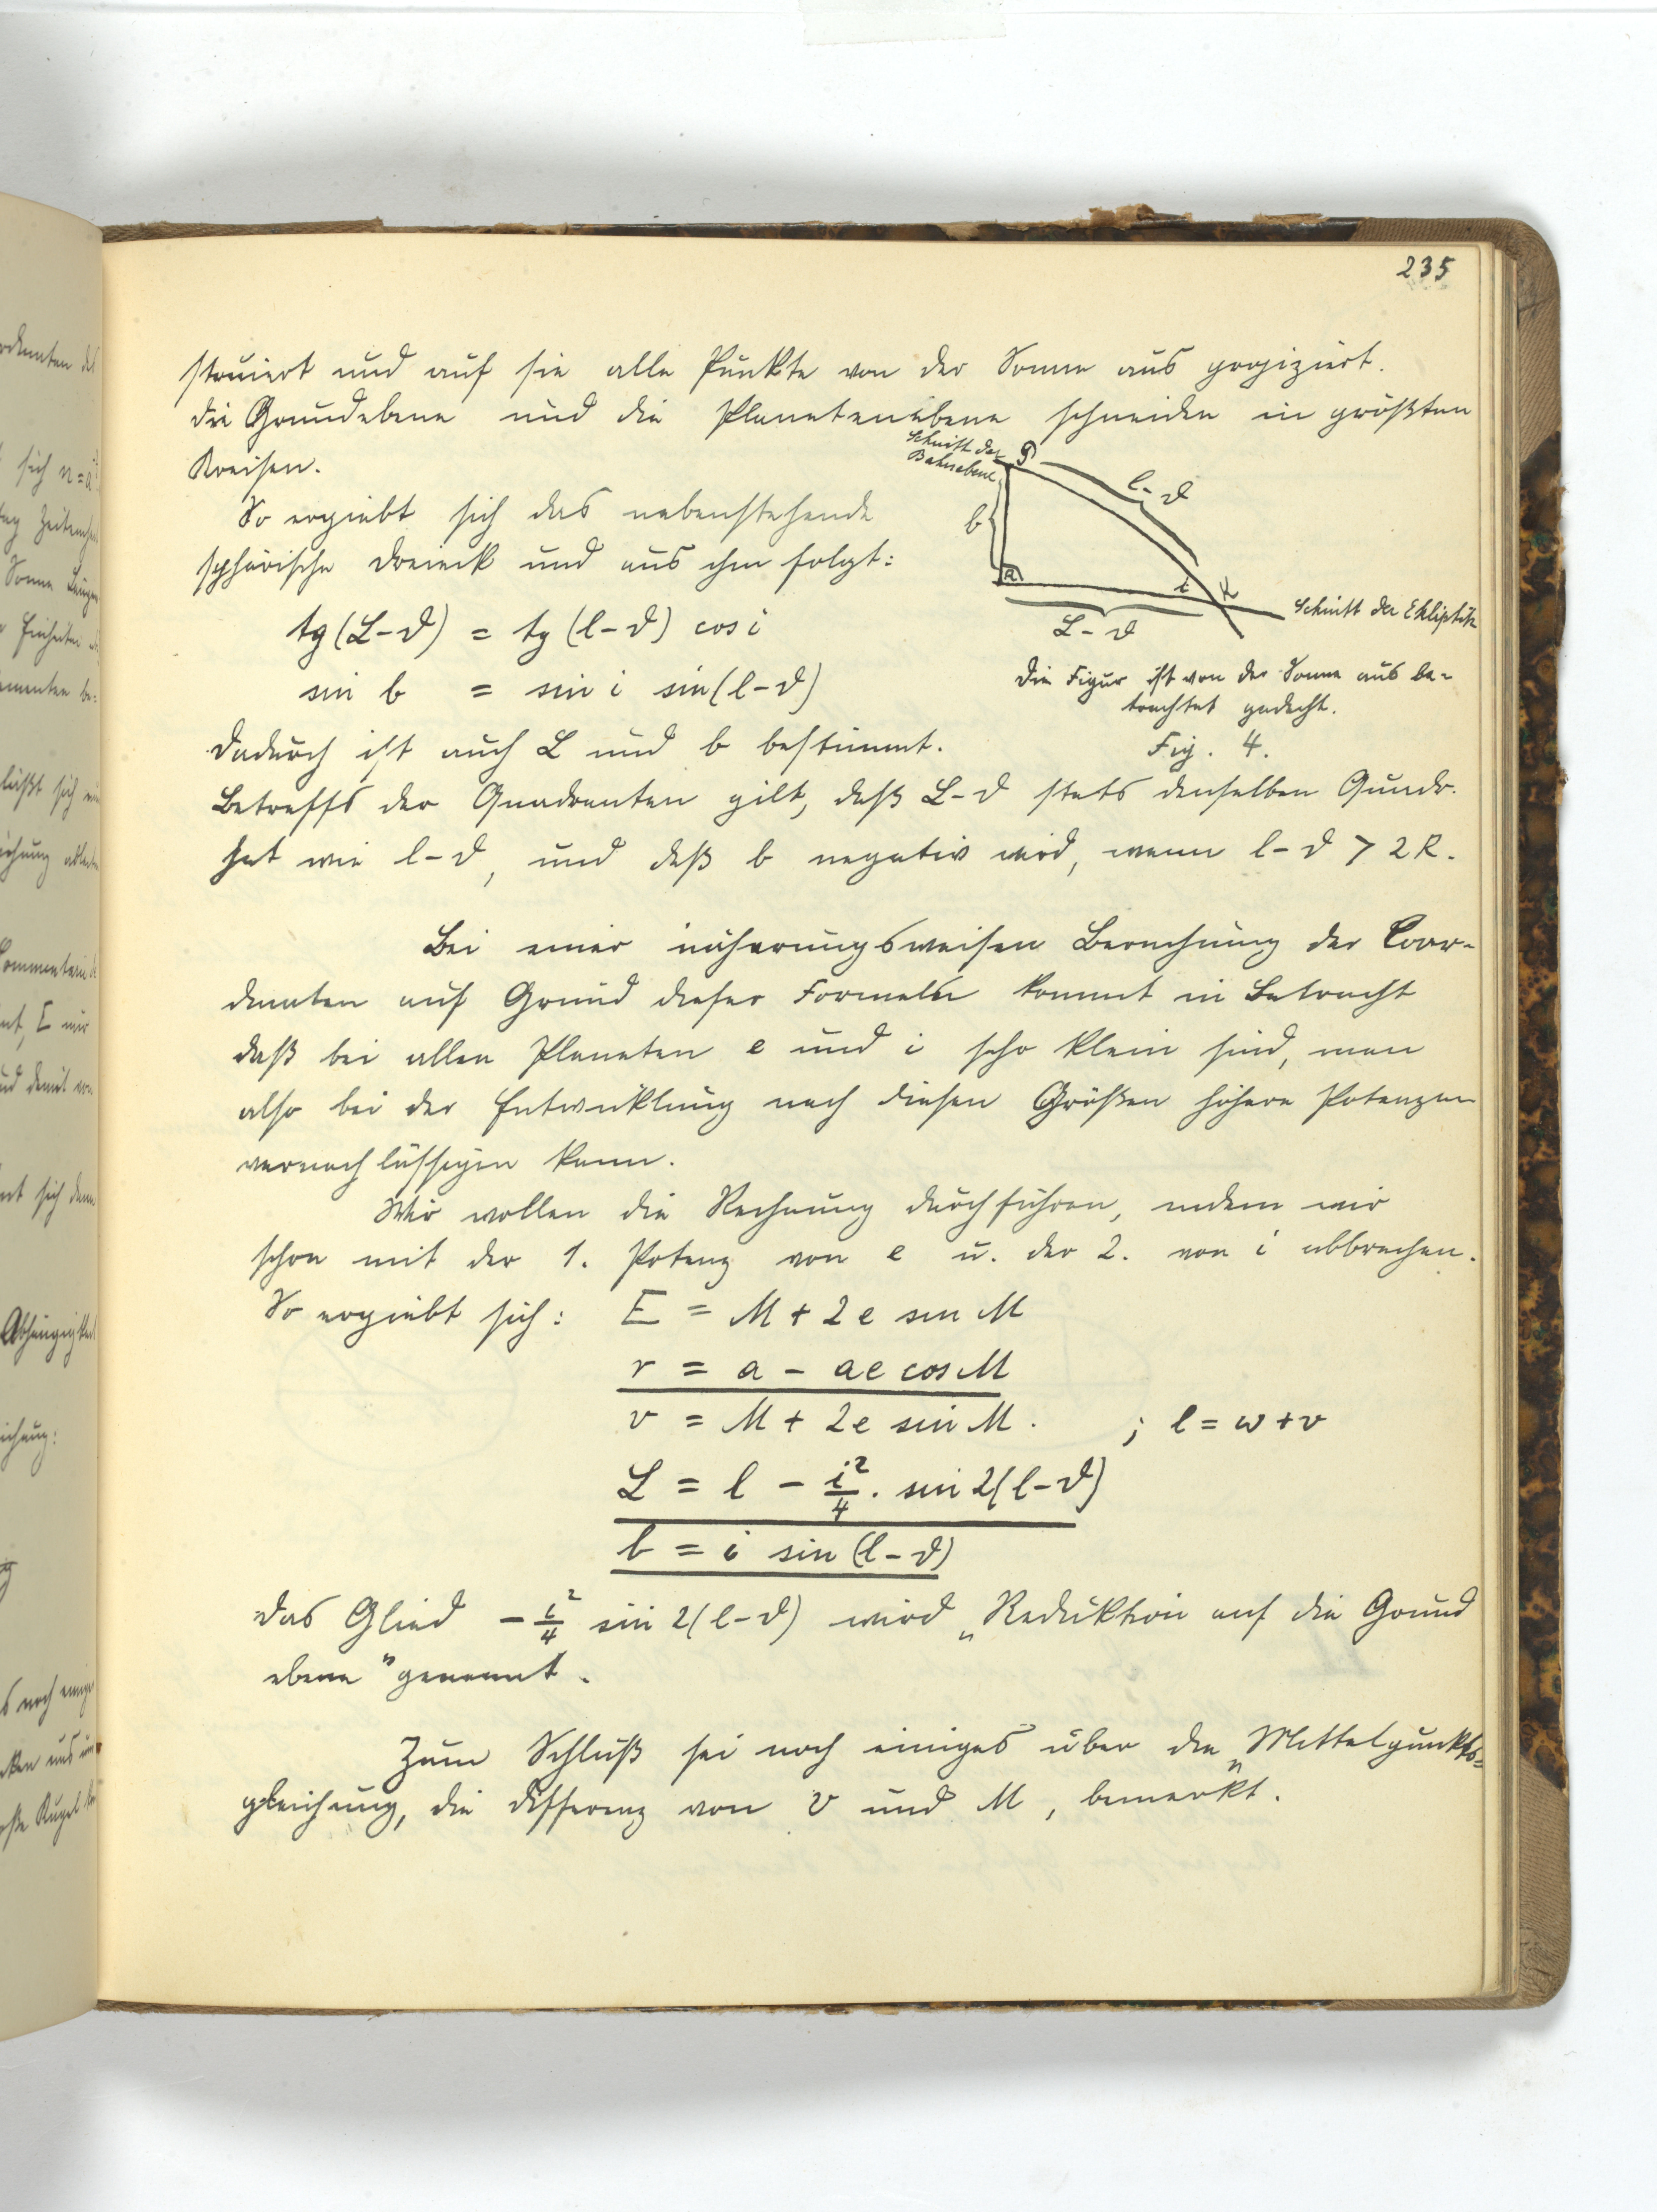 235
struiert und auf sie alle Punkte von der Sonne aus projiziert.
die Grundebene und die Planetenebene schneiden in größten
Kreisen.
Schnitt der
Bahnebene
P
l-ϑ
b
R
i
K
L-ϑ
Schnitt der Ekliptik
So ergiebt sich das nebenstehende
sphärische Dreieck und aus ihm folgt:
tg(L-ϑ) = tg(l-ϑ) cos i
sin b = sin i sin(l-ϑ)
Die Figur ist von der Sonne aus be-
trachtet gedacht.
Fig. 4.
Dadurch ist auch L und b bestimmt.
Betreffs der Quadranten gilt, daß L-ϑ stets denselben Quadr.
hat wie l-ϑ, und daß b negativ wird, wenn l-ϑ > 2R.
Bei einer näherungsweisen Berechnung der Coor-
dinaten auf Grund dieser Formeln kommt in Betracht
daß bei allen Planeten e und i sehr klein sind, man
also bei der Entwicklung nach diesen Größen höhere Potenzen
vernachlässigen kann.
Wir wollen die Rechnung durchführen, indem wir
schon mit der 1. Potenz von e u. der 2. von i abbrechen.
So ergiebt sich: E = M + 2e sin M
r = a - ae cos M
v = M + 2e sin M. ; l = w + v
L = l - i²/4 . sin 2(l-ϑ)
b = i sin (l-ϑ)
Das Glied - i²/4 sin 2(l-ϑ) wird „Reduktion auf die Grund
ebene" genannt.
Zum Schluß sei noch einiges über die „Mittelpunkts=
gleichung, die Differenz von v und M", bemerkt.